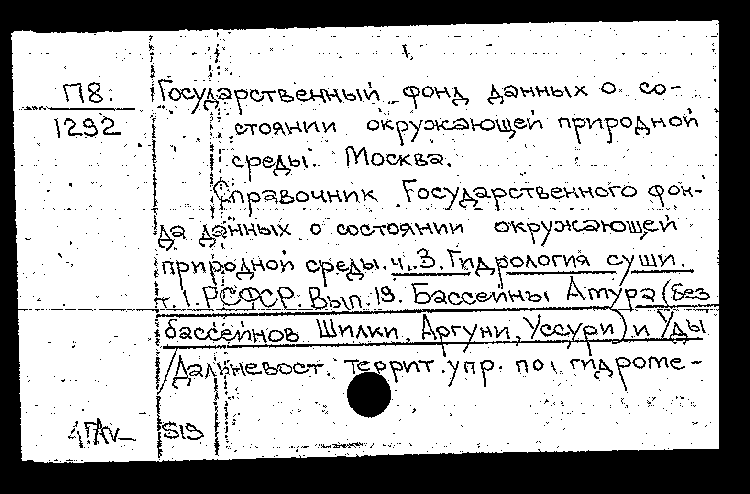 П8.
1292
Государственный фонд данных о со-
стоянии окружающей природной
среды. Москва.
Справочник Государственного фон-
да данных о состоянии окружающей
природной среды. ч.3. Гидрология суши.
т.1. РСФСР. Вып.19. Бассейны Амура (без
бассейнов Шилки, Аргуни, Уссури) и Уды
/Дальневост. террит. упр. по гидроме-
S19